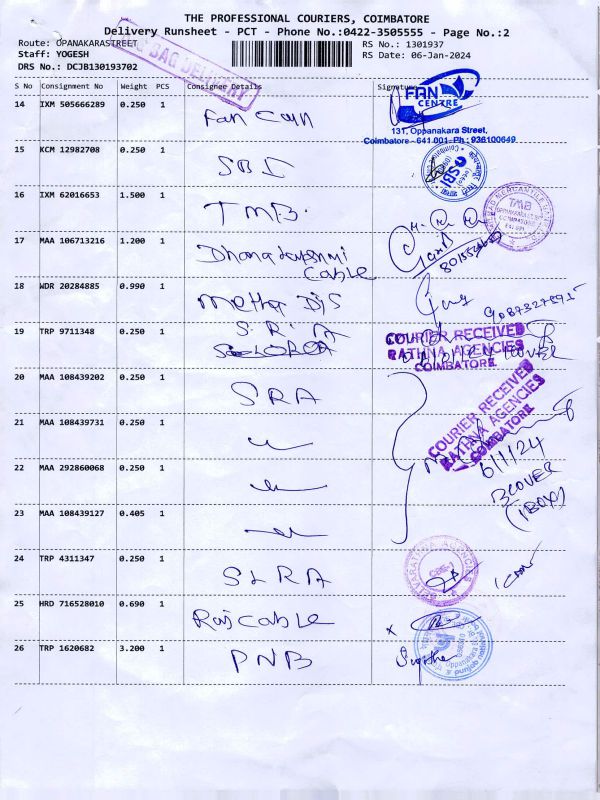 THE PROFESSIONAL COURIERS, COIMBATORE
Delivery Runsheet - PCT - Phone No.:0422-3505555 - Page No.:2
Route: OPANAKARASTREET
RS No.: 1301937
Staff: YOGESH
RS Date: 06-Jan-2024
DRS No.: DCJB130193702
BAG DELIVERY
S No Consignment No Weight PCS Consignee Details Signature
14 IXM 505666289 0.250 1 Fan
FAN CENTRE
131, Oppanakara Street,
Coimbatore - 641 001. Ph : 936100649
15 KCM 12982708 0.250 1 SBI
SBI
16 IXM 62016653 1.500 1 TMB
TMB
17 MAA 106713216 1.200 1 Dhanalakshmi
Cable
18 WDR 20284885 0.990 1
9087327895
19 TRP 9711348 0.250 1 S.R.A
COURIER RECEIVED
RATHNA AGENCIES
COIMBATORE
20 MAA 108439202 0.250 1 SRA
COURIER RECEIVED
RATHNA AGENCIES
COIMBATORE
21 MAA 108439731 0.250 1
6/1/24
22 MAA 292860068 0.250 1
3 COVER
(1 BOX)
23 MAA 108439127 0.405 1
24 TRP 4311347 0.250 1
25 HRD 716528010 0.690 1 Raj Cable
26 TRP 1620682 3.200 1 PNB